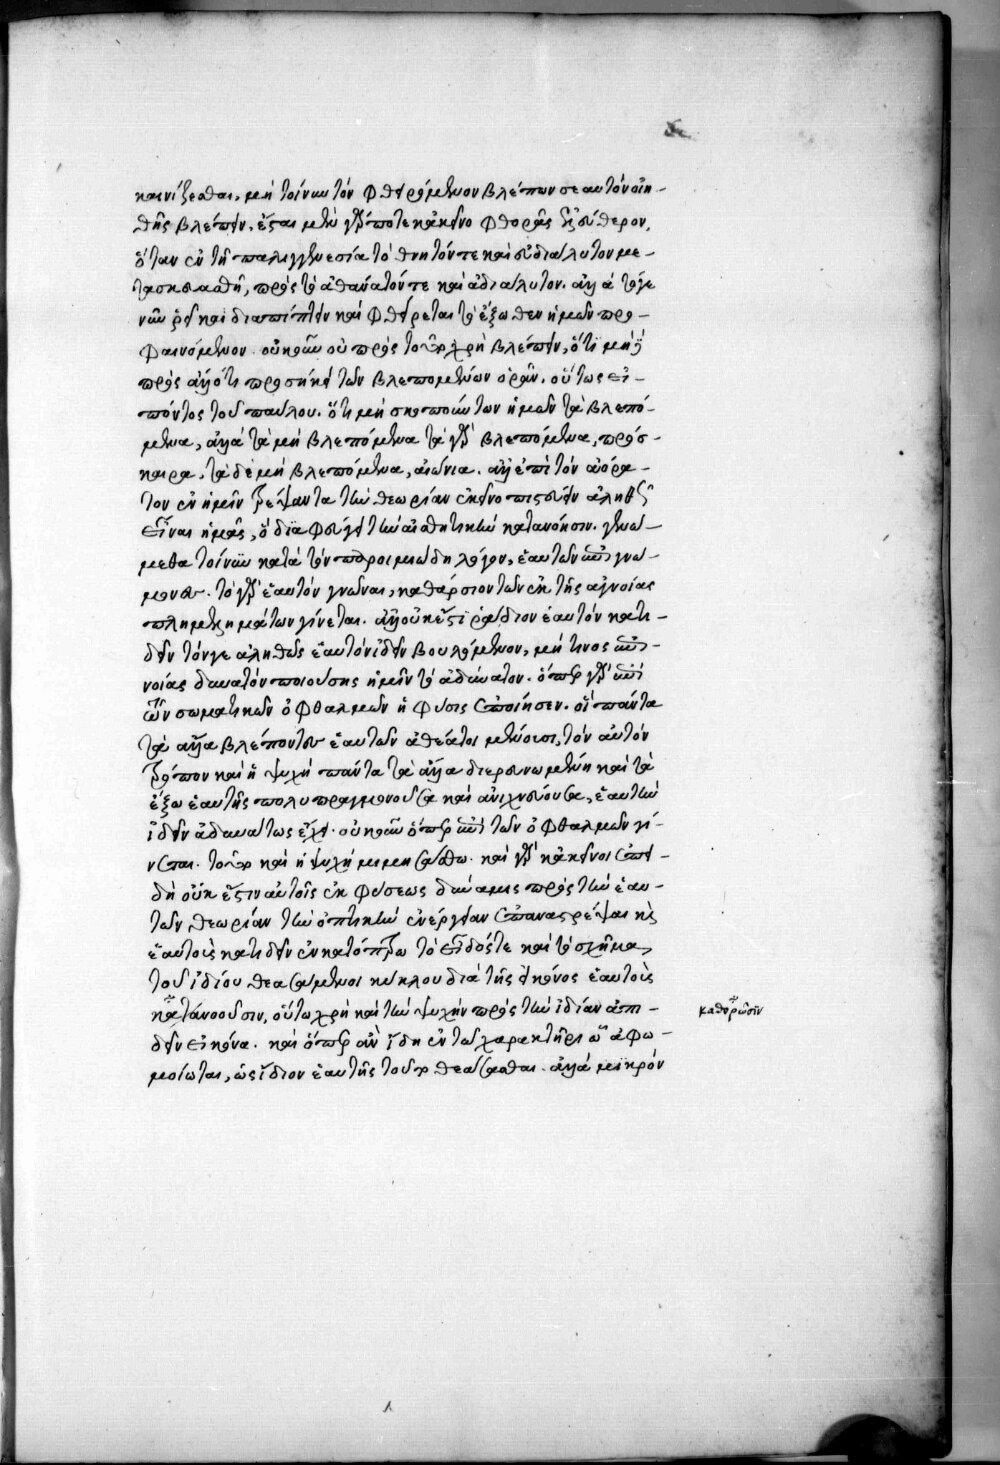 καινίζεσθαι. μὴ τοίνυν τὸν φθειρόμενον βλέπων σεαυτὸν οἰη-
θῇς βλέπειν. ἔσται μὲν γάρ ποτε κἀκεῖνο φθορᾶς ἐλεύθερον,
ὅταν ἐν τῇ παλιγγενεσίᾳ τὸ θνητόν τε καὶ εὐδιάλυτον με-
τασκευασθῇ, πρὸς τὸ ἀθάνατόν τε καὶ ἀδιάλυτον. ἀλλὰ τό γε
νῦν ῥεῖ καὶ διαπίπτει καὶ φθείρεται τὸ ἔξωθεν ἡμῶν προ-
φαινόμενον. οὐκοῦν οὐ πρὸς τοῦτο χρὴ βλέπειν, ὅτι μὴ δὲ
πρὸς ἄλλό τι προσήκει τῶν βλεπομένων ὁρᾶν. οὕτως εἰ-
πόντος τοῦ παύλου. ὅτι μὴ σκοπούντων ἡμῶν τὰ βλεπό-
μενα, ἀλλὰ τὰ μὴ βλεπόμενα τὰ γὰρ βλεπόμενα, πρόσ-
καιρα. τὰ δὲ μὴ βλεπόμενα, αἰώνια. ἀλλ' ἐπὶ τὸν ἀόρα-
τον ἐν ἡμῖν τρέψαντα τὴν θεωρίαν ἐκεῖνο πιστεύειν ἀληθῶς
εἶναι ἡμᾶς, ὃ διαφεύγει τὴν αἰσθητικὴν κατανόησιν. γενώ-
μεθα τοίνυν κατὰ τὸν παροιμιώδη λόγον, ἑαυτῶν ἐπιγνώ-
μονες. τὸ γὰρ ἑαυτὸν γνῶναι, καθάρσιον τῶν ἐκ τῆς ἀγνοίας
πλημμελημάτων γίνεται. ἀλλ' οὐκ ἔστι ῥᾴδιον ἑαυτὸν κατι-
δεῖν τόν γε ἀληθῶς ἑαυτὸν ἰδεῖν βουλόμενον, μή τινος ἐπι-
νοίας δυνατὸν ποιούσης ἡμῖν τὸ ἀδύνατον. ὅπερ γὰρ ἐπὶ
τῶν σωματικῶν ὀφθαλμῶν ἡ φύσις ἐποίησεν. οἳ πάντα
τὰ ἄλλα βλέποντες ἑαυτῶν ἀθέατοι μένουσι, τὸν αὐτὸν
τρόπον καὶ ἡ ψυχὴ πάντα τὰ ἄλλα διερευνωμένη καὶ τὰ
ἔξω ἑαυτῆς πολυπραγμονοῦσα καὶ ἀνιχνεύουσα, ἑαυτὴν
ἰδεῖν ἀδυνάτως ἔχει. οὐκοῦν ὅπερ ἐπὶ τῶν ὀφθαλμῶν γί-
νεται. τοῦτο καὶ ἡ ψυχὴ μιμησάσθω. καὶ γὰρ κἀκεῖνοι ἐπει-
δὴ οὐκ ἔστιν αὐτοῖς ἐκ φύσεως δύναμις πρὸς τὴν ἑαυ-
τῶν θεωρίαν τὴν ὀπτικὴν ἐνέργειαν ἐπαναστρέψαι καὶ
ἑαυτοὺς κατιδεῖν ἐν κατόπτρῳ τὸ εἶδός τε καὶ τὸ σχῆμα,
τοῦ ἰδίου θεασάμενοι κύκλου διὰ τῆς εἰκόνος ἑαυτοὺς
κατανοοῦσιν, οὕτω χρὴ καὶ τὴν ψυχὴν πρὸς τὴν ἰδίαν ἀπι-
δεῖν εἰκόνα. καὶ ὅπερ ἂν ἴδῃ ἐν τῷ χαρακτῆρι ᾧ ἀφω-
μοίωται, ὡς ἴδιον ἑαυτῆς τοῦτο θεάσασθαι. ἀλλὰ μικρόν
καθορῶσιν